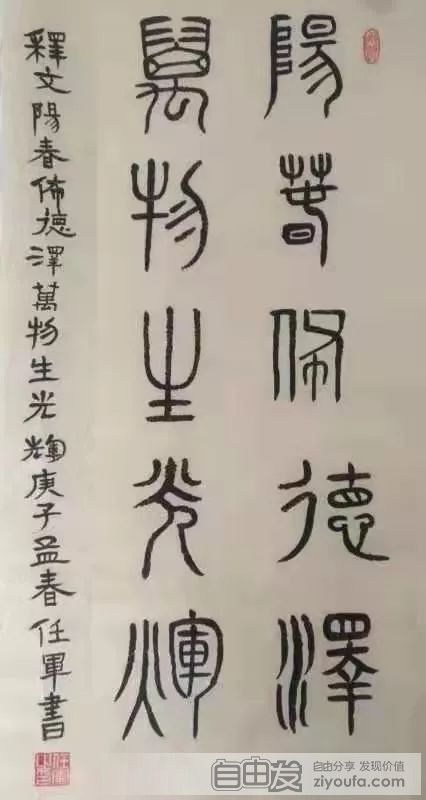 陽春佈德澤
萬物生光煇
釋文陽春佈德澤萬物生光輝庚子孟春任軍書
自由发
自由分享 发现价值
ziyoufa.com